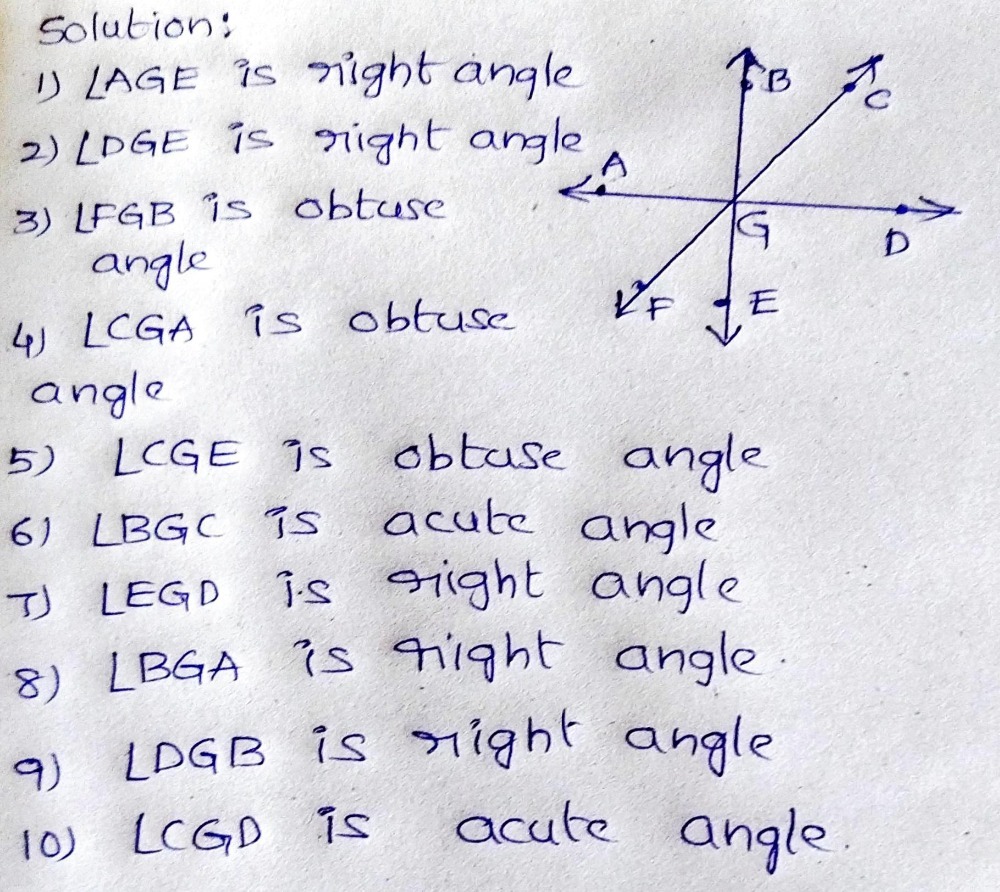 Solution:
1) ∠AGE is right angle
2) ∠DGE is right angle
3) ∠FGB is obtuse
angle
4) ∠CGA is obtuse
angle
5) ∠CGE is obtuse angle
6) ∠BGC is acute angle
7) ∠EGD is right angle
8) ∠BGA is right angle.
9) ∠DGB is right angle
10) ∠CGD is acute angle.
B
C
A
G
D
F
E